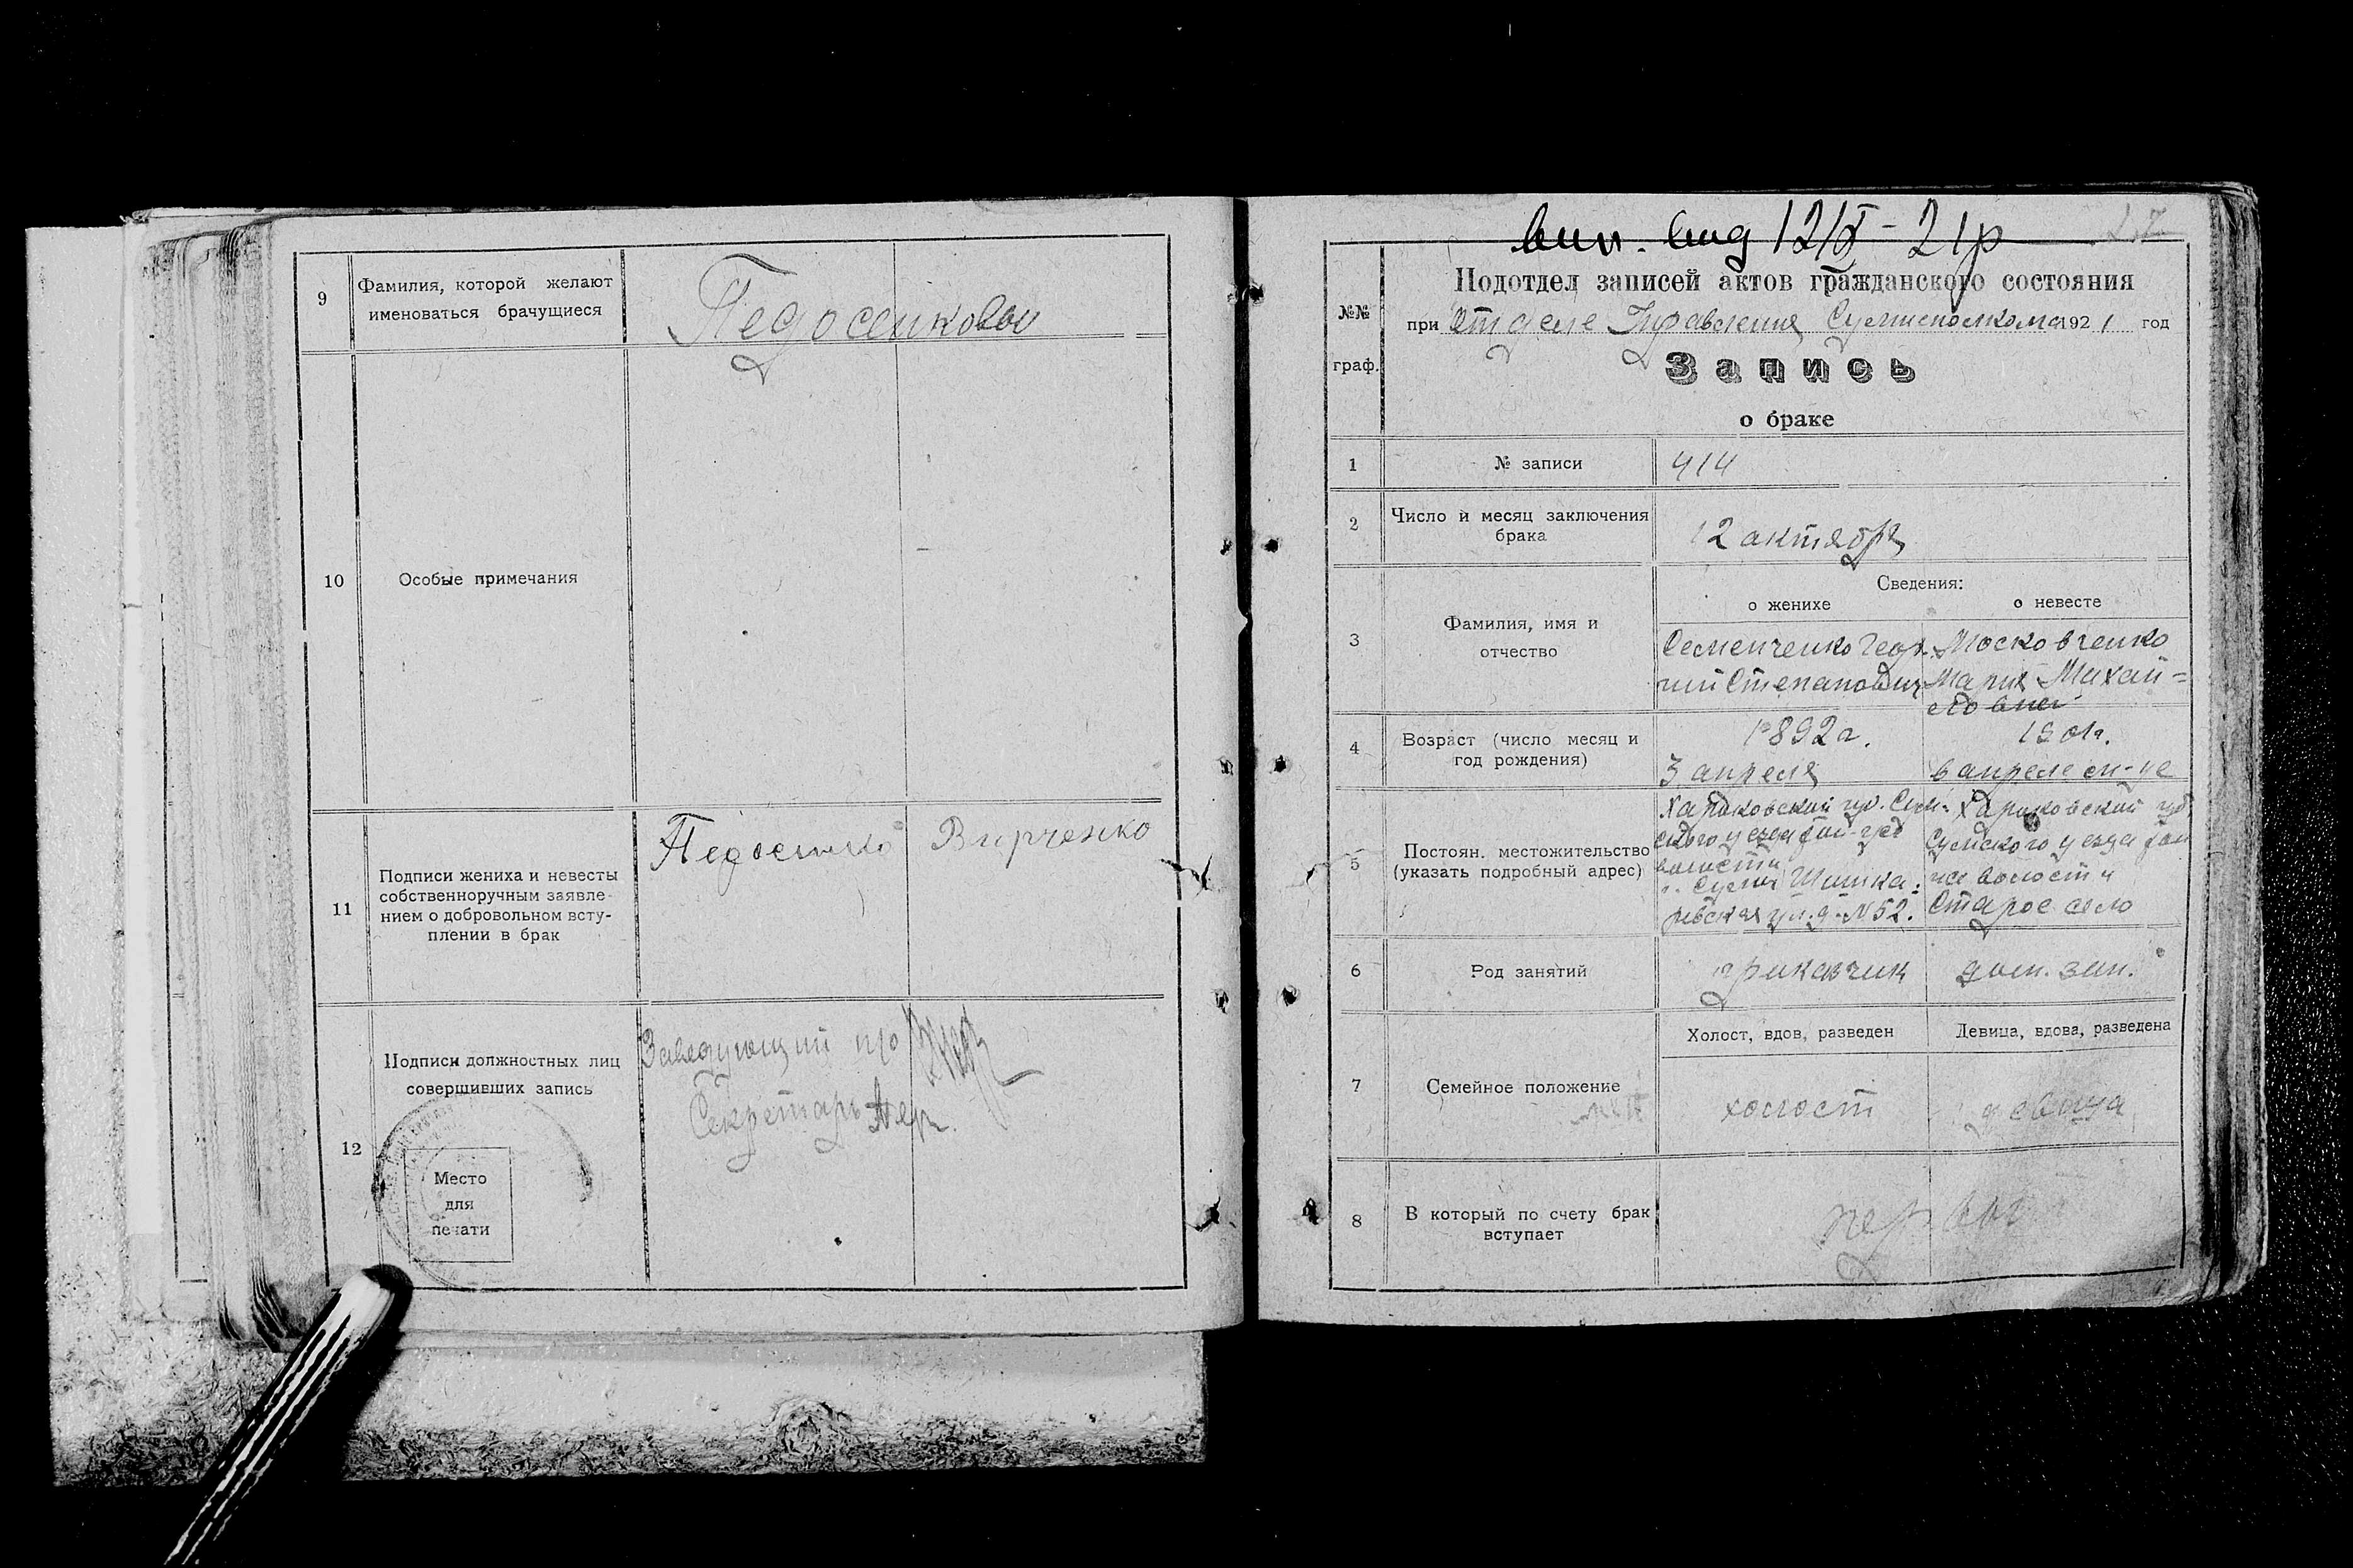 9
Фамилия, которой желают
именоваться брачущиеся
Педосенковы
10
Особые примечания
11
Подписи жениха и невесты
собственноручным заявле-
нием о добровольном всту-
плении в брак
Педосенко
Вирченко
12
Подписи должностных лиц
совершивших запись
Заведующий п/о
Секретарь
Место
для
печати
12/X - 21р
№№
граф.
Подотдел записей актов гражданского состояния
при Отделе Управления Сумисполкома 1921 год
Запись
о браке
1
№ записи
414
2
Число и месяц заключения
брака
12 актября
3
Фамилия, имя и
отчество
Сведения:
о женихе
о невесте
Семенченко Геор-
гий Степанович
Московченко
Мария Михай=
ловней
4
Возраст (число месяц и
год рождения)
1892 г.
3 апреля
1901 г.
в апреле м-це
5
Постоян. местожительство
(указать подробный адрес)
Харьковский губ. Сум-
ского уезда
волости
г. Сумы
ул. д. N 52.
Харьковский губ
Сумского уезда
волости
Старое село
6
Род занятий
приказчик
дом. зан.
7
Семейное положение
Холост, вдов, разведен
Девица, вдова, разведена
холост
девица
8
В который по счету брак
вступает
первый